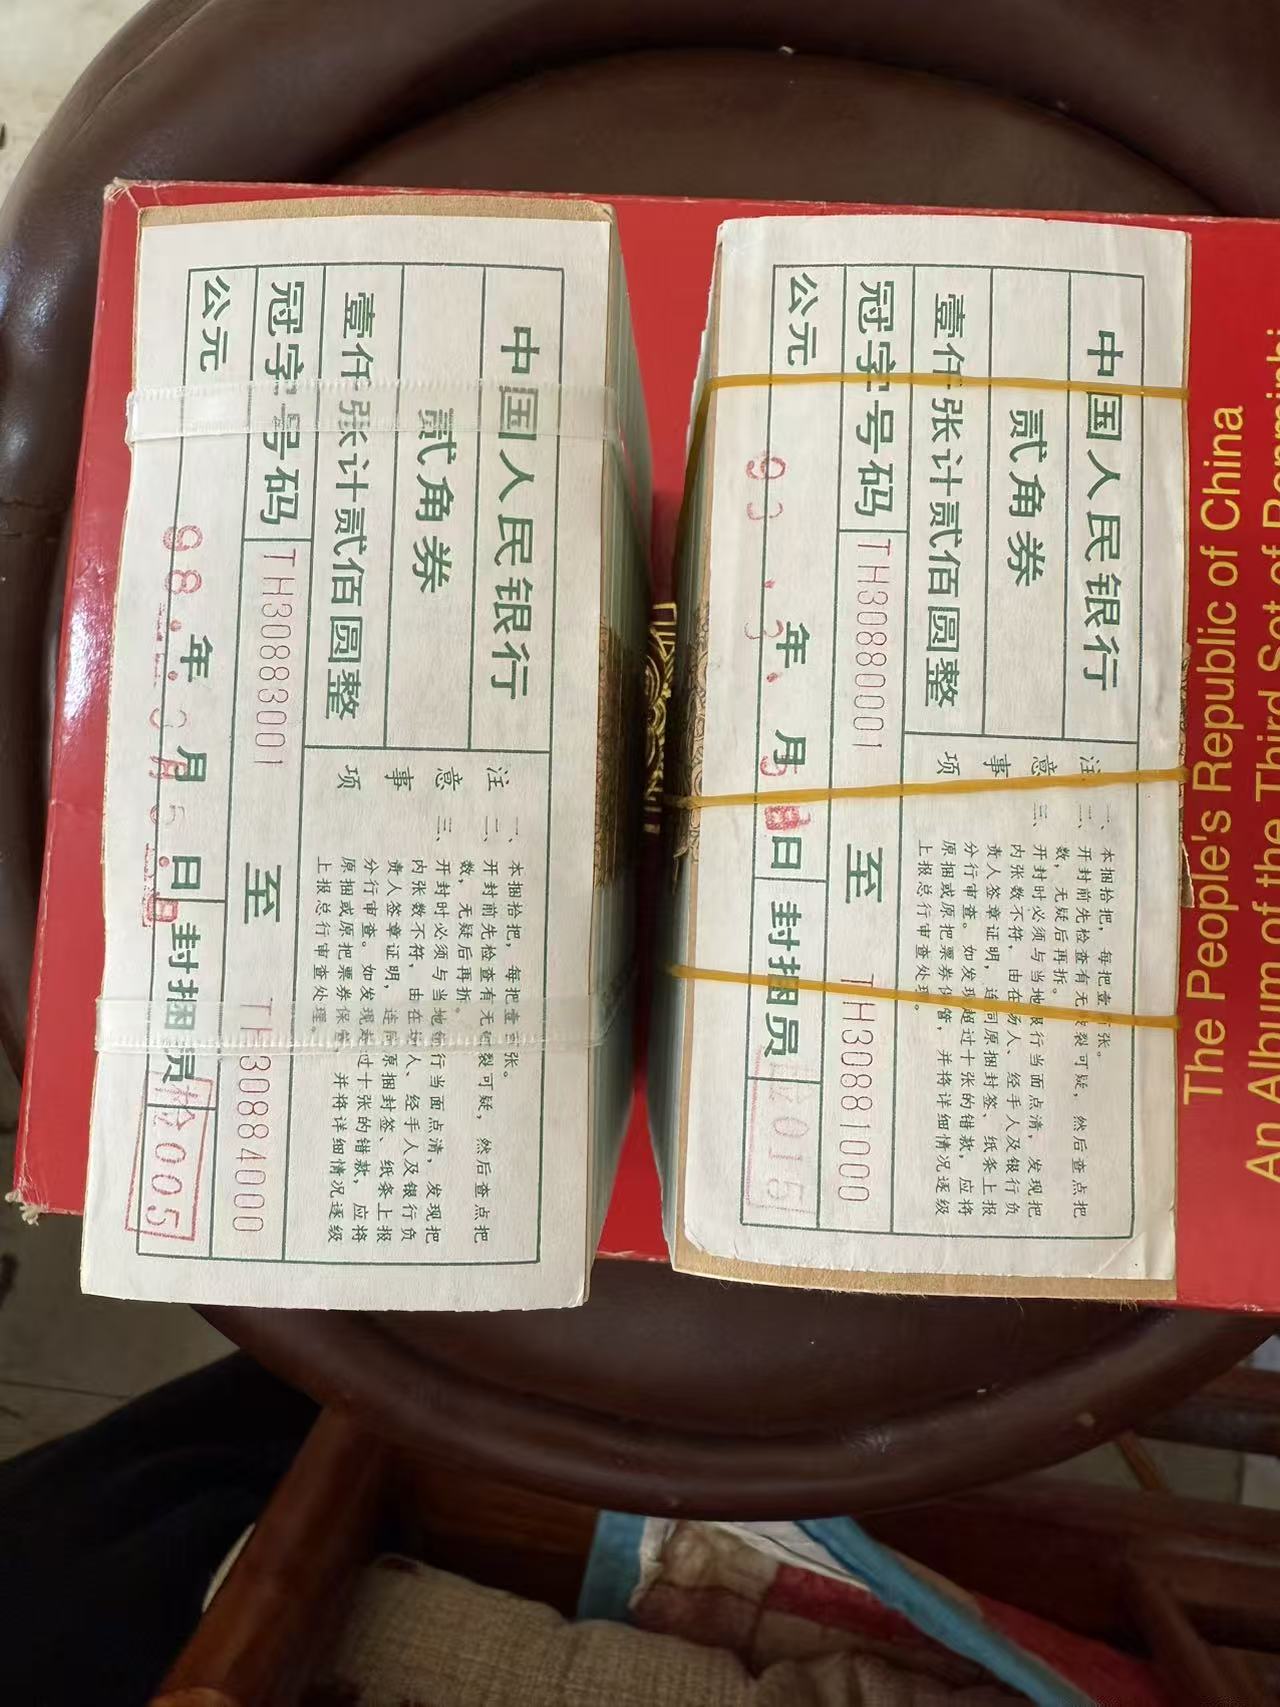 中国人民银行
贰角券
壹仟张计贰佰圆整
冠字号码 TH30883001 至 TH30884000
公元 98.年.3月5.日 封捆员 005
注意事项
一、本捆拾把，每把壹佰张。
二、开封前先检查有无破裂可疑，然后查点把
数，无疑后再拆。
三、开封时必须与当地银行当面点清，发现把
内张数不符，由在场人、经手人及银行负
责人签章证明，连同原捆封签、纸条上报
分行审查。如发现超过十张的错款，应将
原捆或原把票券保管，并将详细情况逐级
上报总行审查处理。
中国人民银行
贰角券
壹仟张计贰佰圆整
冠字号码 TH30880001 至 TH30881000
公元 93.3年.月5日 封捆员 015
注意事项
一、本捆拾把，每把壹佰张。
二、开封前先检查有无破裂可疑，然后查点把
数，无疑后再拆。
三、开封时必须与当地银行当面点清，发现把
内张数不符，由在场人、经手人及银行负
责人签章证明，连同原捆封签、纸条上报
分行审查。如发现超过十张的错款，应将
原捆或原把票券保管，并将详细情况逐级
上报总行审查处理。
The People's Republic of China
An Album of the Third Set of Renminbi